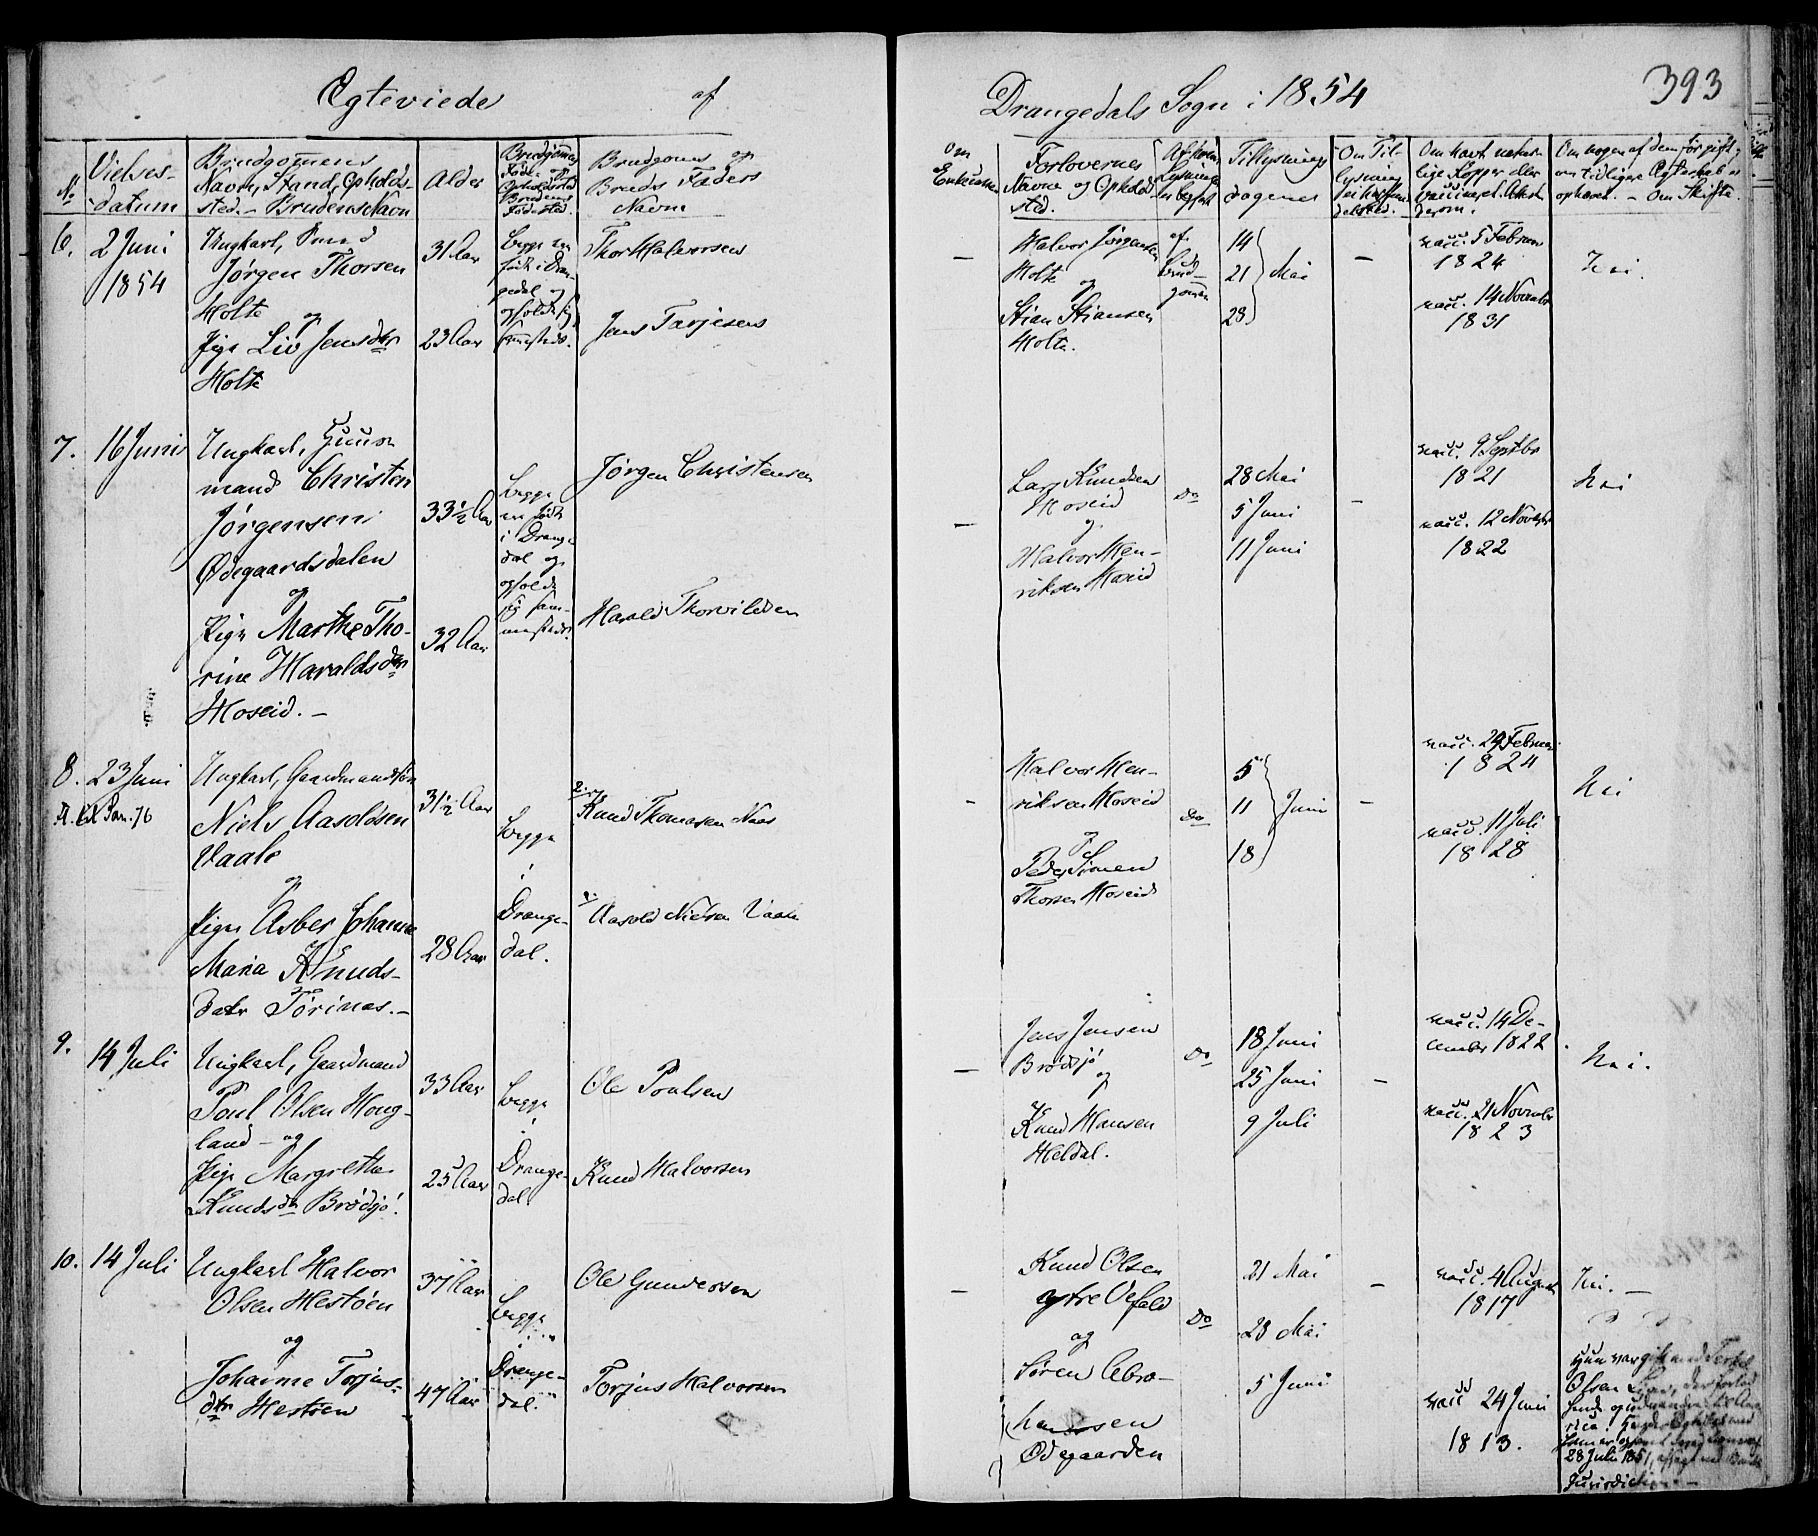 Egteviede af
Drangedals Sogn i 1854
393
No
Vielses-
datum
Brudgommens
Navn, Stand, Opholds-
sted. Brudens Navn
Alder
Brudgommens
Føde- og
Opholdssted
Brudens
Fødested.
Brudgoms og
Bruds Faders
Navn
Om
Forlovernes
Navne og Opholds
sted.
Af hvem
Lysningen
er begjært
Tillysnings
dagene
Om Til-
lysning
Om havt natur-
lige Kopper eller
vaccineret. Attest
derom.
Om nogen af dem før gift,
om tidligere Egteskab er
ophævet. - Om Skifte.
6.
2 Juni
1854
Ungkarl,
Jørgen Thorsen
Holte
og
Pige Liv Jensdtr
Holte
31 Aar
23 Aar
begge ere
født i Dran-
gedal og
opholde sig
sammesteds.
Thor Halvorsen
Jens Tarjesens
-
Halvor Jørgensen
Holte
og
Stian Stiansen
Holte.
af
Brud-
gommen
14
21 Mai
28
-
vacc. 5 Februar
1824
vacc. 14 November
1831
Nei.
7.
16 Juni
Ungkarl, Huus
mand Christen
Jørgensen
Ødegaardsdalen
og
Pige Marthe Tho-
rine Haraldsdtr
Hoseid. -
33½ Aar
32 Aar
begge
ere født
i Drange
dal og
opholde
sig sam-
mesteds.
Jørgen Christensen
Harald Thorvildsen
-
Lars Knudsen
Hoseid
og
Halvor Hen-
riksen Hoseid
Do
28 Mai
5 Juni
11 Juni
-
vacc. 9 Septbr
1821
vacc. 12 Novbr
1822
Nei
8.
23 Juni
Ungkarl, Gaardmandssøn
Niels Aasoldsen
Vaale
og
Pige Asber Johanne
Maria Knuds-
datr Tørinas. -
31½ Aar
28 Aar
begge
i
Drange-
dal.
2.
Knud Thomasen Naas
1.
Aasold Nielsen Vaale
-
Halvor Hen-
riksen Hoseid
og
Peder Simen
Thorsen Hoseid
Do
5
11 Juni
18
-
vacc. 29 Februar
1824
vacc. 11 Juli
1828
Nei
9.
14 Juli
Ungkarl, Gaardmand
Poul Olsen Houg-
land - og
Pige Margrethe
Knudsdtr Brødsjø.
33 Aar
25 Aar
begge
i
Drange-
dal
Ole Poulsen
Knud Halvorsen
-
Jens Jensen
Brødsjø
og
Knud Hansen
Heldal.
Do
18 Juni
25 Juni
9 Juli
-
vacc. 14 De-
cember 1822
vacc. 21 Novembr
1823
Nei.
10.
14 Juli
Ungkarl Halvor
Olsen Hestøen
og
Johanne Torjus-
dtr Hestøen
37 Aar
47 Aar
begge
i
Drange-
dal.
Ole Gundersen
Torjus Halvorsen
-
Knud Olsen
ytre Oefald
og
Søren Abra-
hamsen
Ødegaarden
Do
21 Mai
28 Mai
5 Juni
-
vacc. 4 August
1817
vacc 24 Juni
1813.
Nei. -
Hun var gift med
Olsen
28 Juli 1851, afsagt
Jurisdiction -